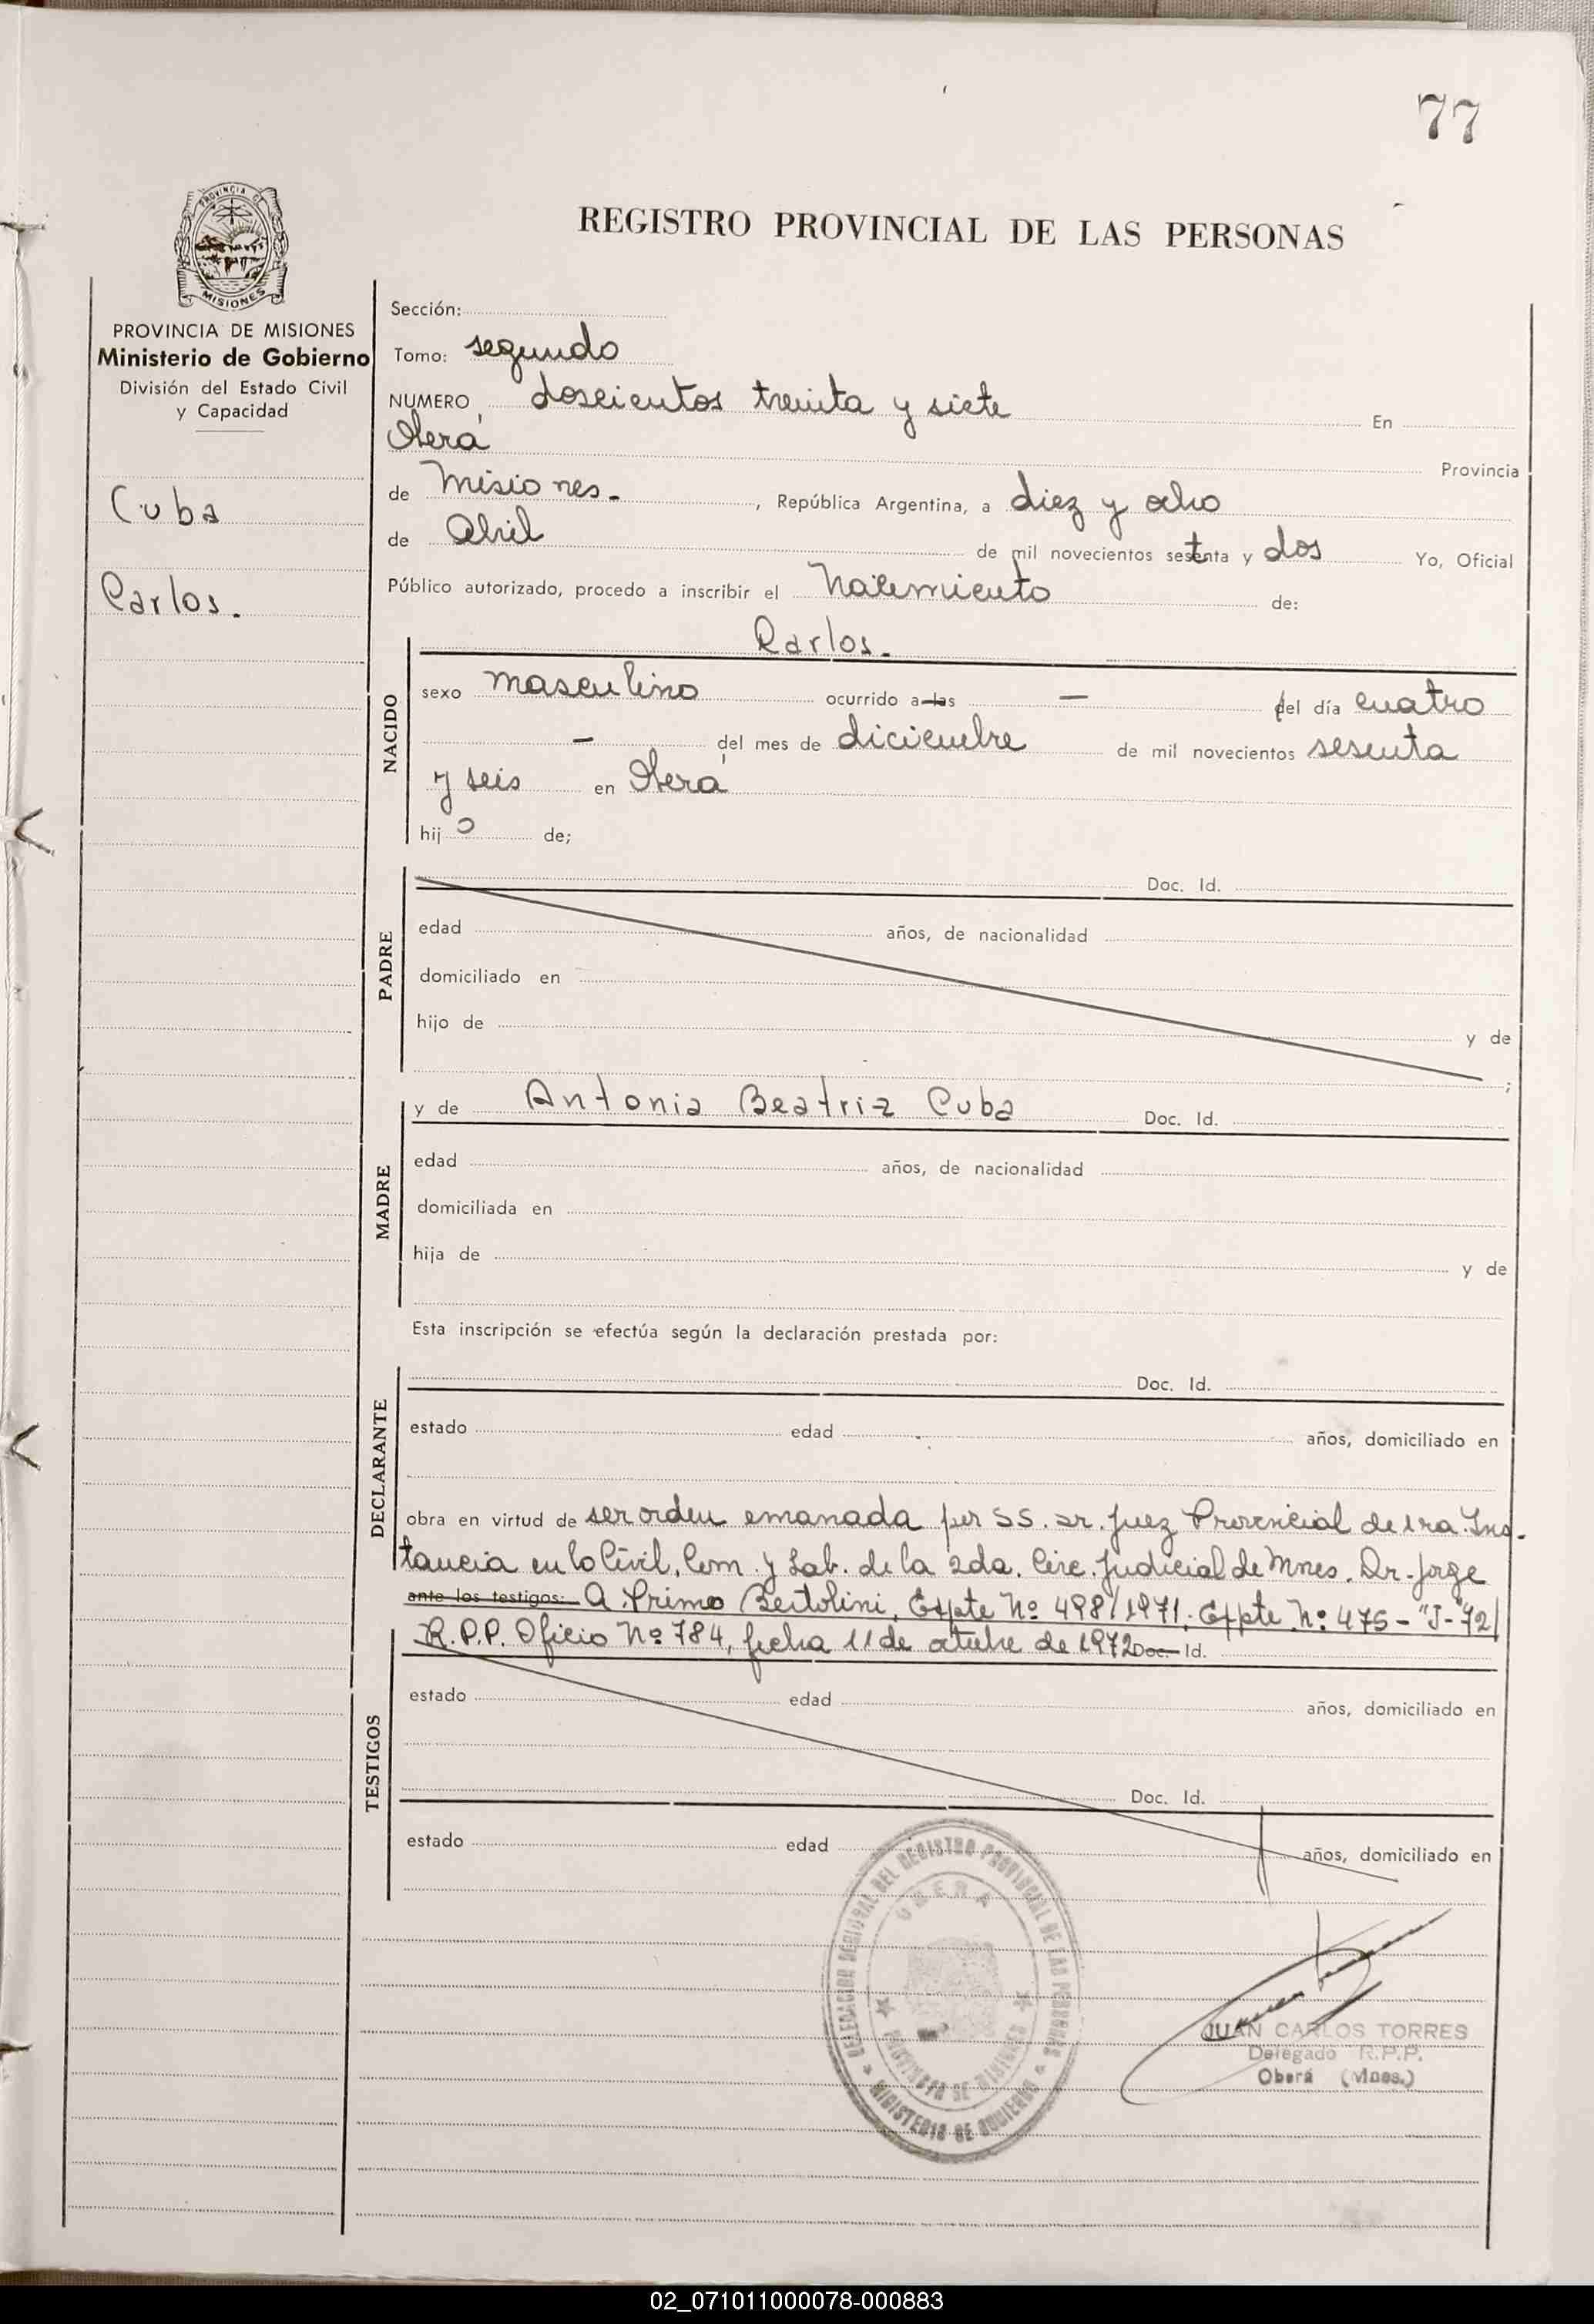 77
PROVINCIA DE
MISIONES
REGISTRO PROVINCIAL DE LAS PERSONAS
PROVINCIA DE MISIONES
Ministerio de Gobierno
División del Estado Civil
y Capacidad
Cuba
Carlos.
Sección:
Tomo: segundo
NUMERO doscientos treinta y siete En
Oberá Provincia
de Misiones.- , República Argentina, a diez y ocho
de Abril de mil novecientos setenta y dos Yo, Oficial
Público autorizado, procedo a inscribir el Nacimiento de:
Carlos.-
NACIDO
sexo masculino ocurrido a las — del día cuatro
— del mes de diciembre de mil novecientos sesenta
y seis en Oberá
hijo de;
PADRE
Doc. Id.
edad años, de nacionalidad
domiciliado en
hijo de y de
;
MADRE
y de Antonia Beatriz Cuba Doc. Id.
edad años, de nacionalidad
domiciliada en
hija de y de
Esta inscripción se efectúa según la declaración prestada por:
DECLARANTE
Doc. Id.
estado edad años, domiciliado en
obra en virtud de ser orden emanada por SS. Sr. Juez Provincial de 1ra. Ins-
tancia en lo Civil, Com. y Lab. de la 2da. Circ. Judicial de Mnes. Dr. Jorge
ante los testigos: A. Primo Bertolini, Expte Nº 498/1971; Expte. Nº 475-"J-72/
R.P.P. Oficio Nº 784, fecha 11 de octubre de 1972 Doc. Id.
TESTIGOS
estado edad años, domiciliado en
Doc. Id.
estado edad años, domiciliado en
DELEGACION REGIONAL DEL REGISTRO PROVINCIAL DE LAS PERSONAS
OBERA
PROVINCIA DE MISIONES
MINISTERIO DE GOBIERNO
JUAN CARLOS TORRES
Delegado R.P.P.
Oberá (Mnes.)
02_071011000078-000883